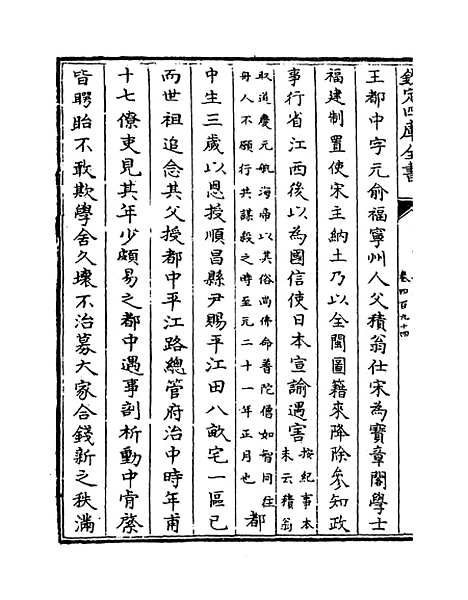 欽定四庫全書
卷四百九十四
王都中字元俞福寧州人父積翁仕宋為寶章閣學士
福建制置使宋主納土乃以全閩圖籍來降除參知政
事行省江西後以為國信使日本宣諭遇害按紀事本末云積翁
取道慶元航海帝以其俗尚佛命普陀僧如智同往舟人不願行共謀殺之時至元二十一年正月也都
中生三歲以恩授順昌縣尹賜平江田八畝宅一區已
而世祖追念其父授都中平江路總管府治中時年甫
十七僚吏見其年少頗易之都中遇事剖析動中肯綮
皆腭眙不敢欺學舍久壞不治募大家合錢新之秩滿